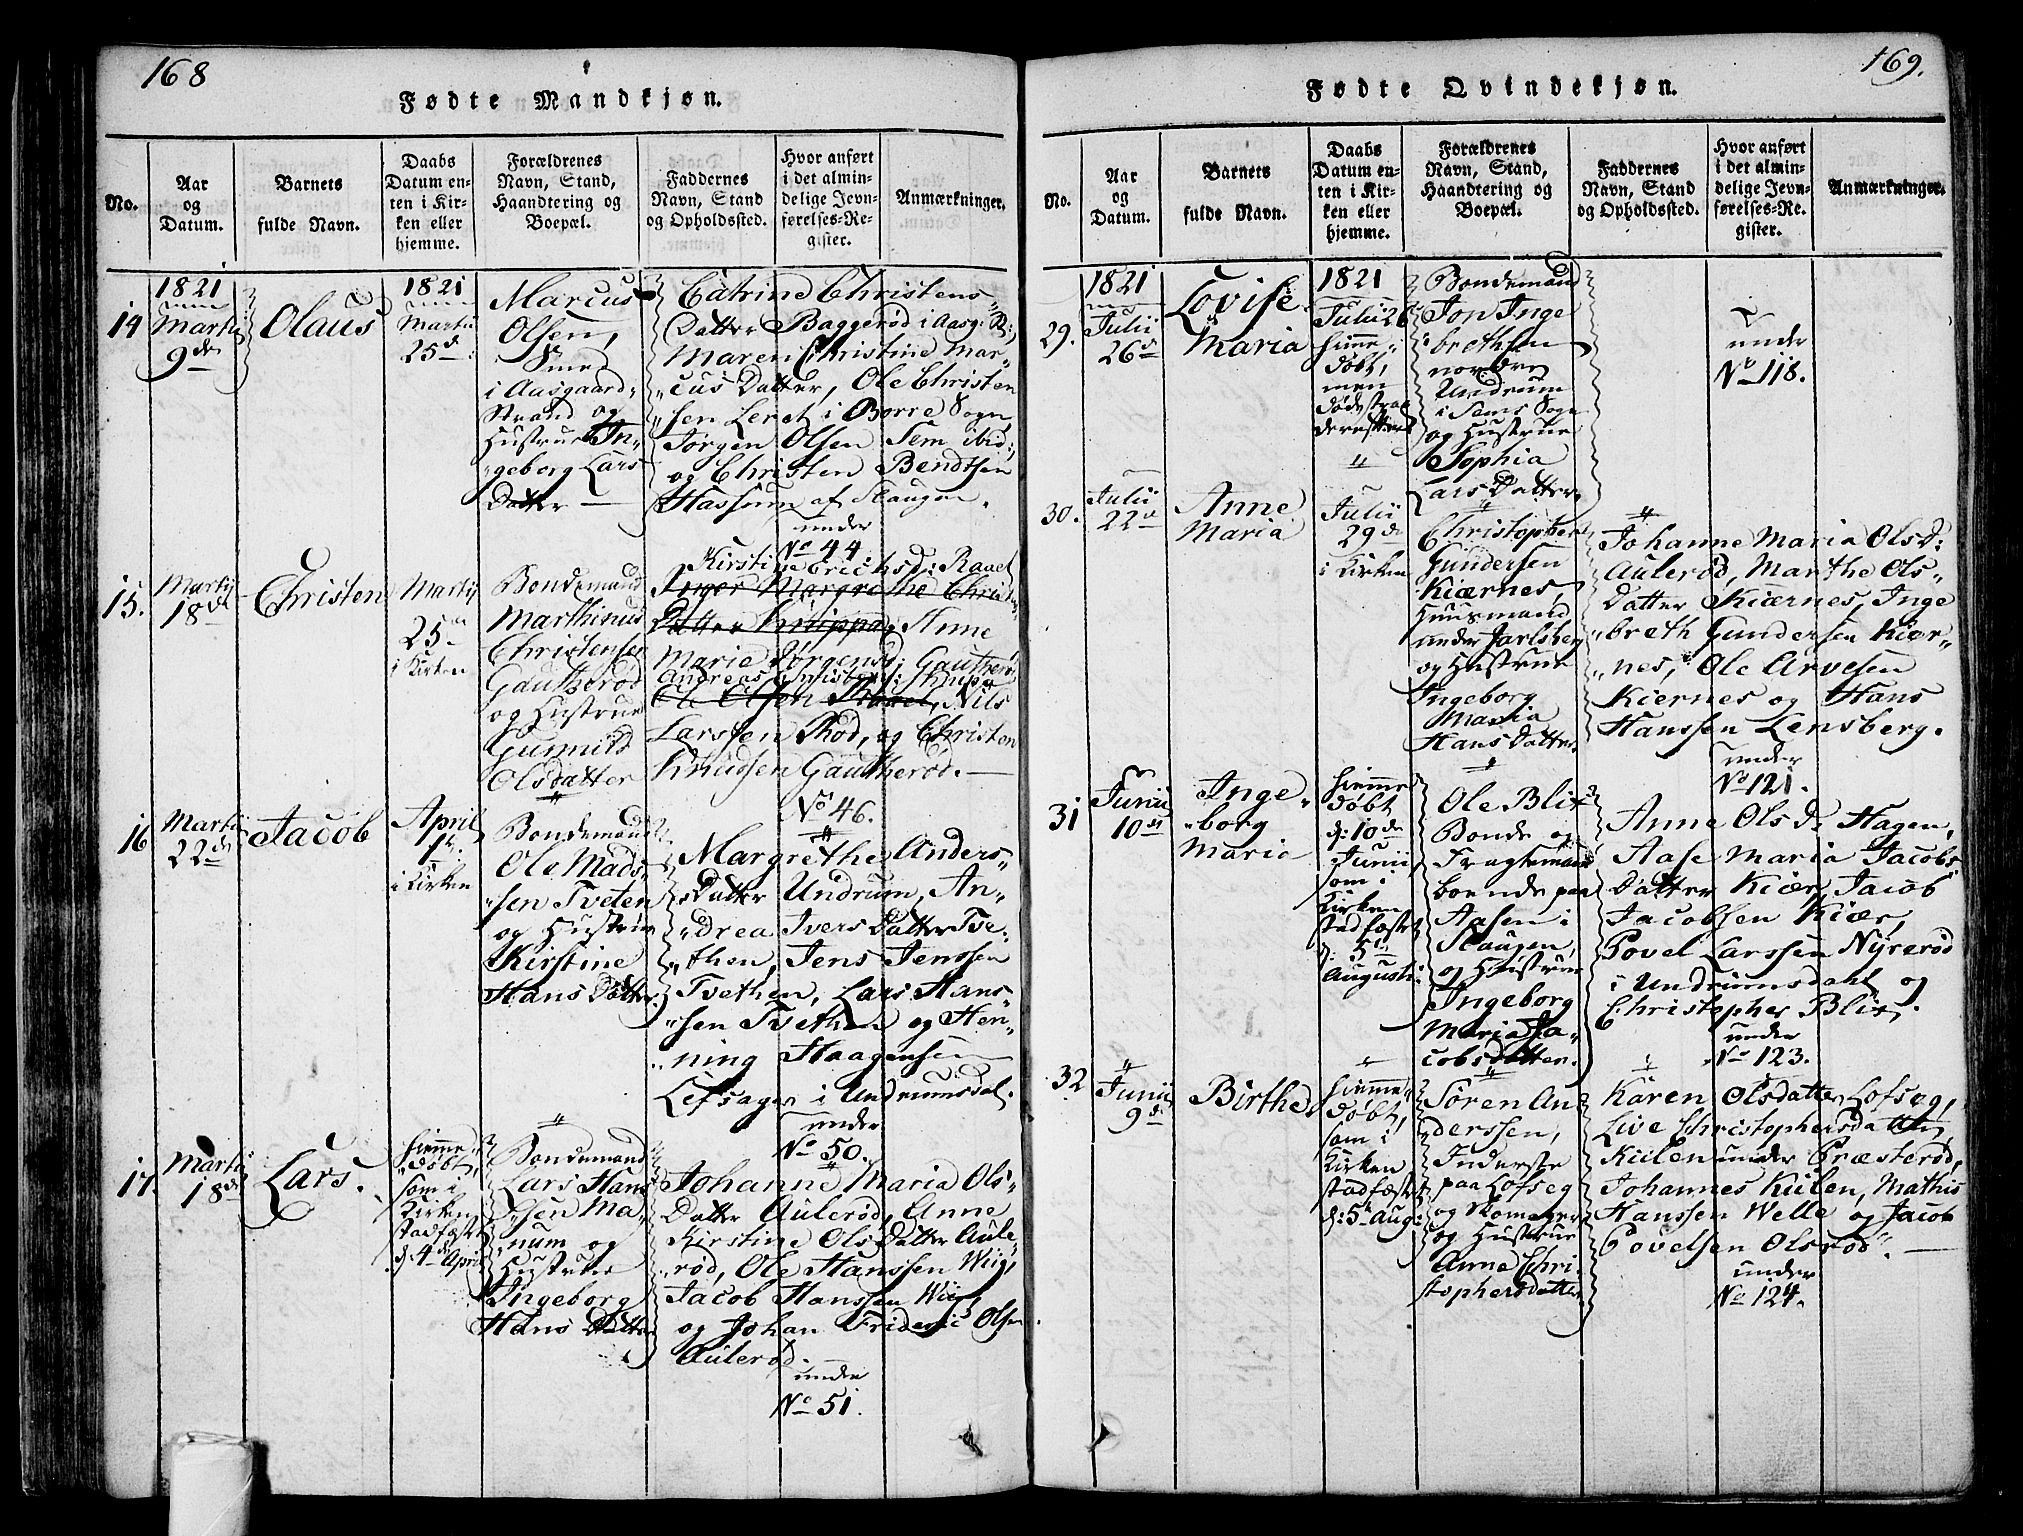 168
Fødte Mandkjøn.
No.
Aar
og
Datum.
Barnets
fulde Navn.
Daabs
Datum en-
ten i Kir-
ken eller
hjemme.
Forældrenes
Navn, Stand,
Haandtering og
Boepæl.
Faddernes
Navn, Stand
og Opholdssted.
Hvor anført
i det almin-
delige Jevn-
førelses-Re-
gister.
Anmærkninger.
14
1821
Martii
9de
Olaus
1821
Martii
25de
Marcus
Olsen,
i Aasgaard-
Strand og
Hustrue In-
geborg Lars
Datter —
Catrine Christens
Datter Baggerød i Aasg: St;
Maren Christine Mar-
cus Datter, Ole Christen
sen Leret i Borre Sogn,
Jørgen Olsen Sem ibid:
og Christen Bendtsen
Hassum af Slaugen.
under
No 44.
15.
Martij
18de
Christen
Martij
25de
i Kirken
Bondemand
Marthinus
Christensen
Gautherød
og Hustrue
Gunnild
Olsdatter
Kirstine Erichsd: Raael
Inger Margrethe Christen
Datter Knippa, Anne
Marie Jørgensd: Gautherød
Andreas
Ole Olsen Raael, Nils
Larssen Rød, og Christen
Knudsen Gautherød. —
No 46.
16
Martij
22de
Jacob
April
1te
i Kirken
Bondemand
Ole Mads-
sen Tveten
og Hustrue
Kirstine
Hans Datter.
Margrethe Anders-
Datter Undrum, An-
drea Ivers Datter Tve-
then, Jens Jenssen
Tvethen, Lars Hans-
sen Tvethen og Hen-
ning Haagensen
Lefsager i Undrumsdal.
under
No 50.
17.
Martij
18de
Lars.
hjemme-
døbt,
som i
Kirken
stadfæst
d: 4de April
Bondemand
Lars Hans
sen Ma-
num og
Hustrue
Ingeborg
Hans Datter
Johanne Maria Ols-
Datter Aulerød, Anne
Kirstine Ols Datter Aule-
rød, Ole Hanssen Wiig,
Jacob Hanssen Wiig,
og Johan Frideric Olsen
Aulerød.
under
No 51.
169.
Fødte Qvindekjøn.
No.
Aar
og
Datum.
Barnets
fulde Navn.
Daabs
Datum en-
ten i Kir-
ken eller
hjemme.
Forældrenes
Navn, Stand,
Haandtering og
Boepæl.
Faddernes
Navn, Stand
og Opholdssted.
Hvor anført
i det almin-
delige Jevn-
førelses-Re-
gister.
Anmærkninger.
29.
1821
Julii
26de
Lovise
Maria
1821
Julii 26
hjemme
døbt,
men
døde strax
derefter
Bondemand
Jon Inge
brethsen
nordre
Undrum
i Sems Sogn
og Hustrue
Sophia
Lars Datter
under
No 118.
30.
Julii
22de
Anne
Maria
Julii
29de
i Kirken
Christopher
Gundersen
Kiærnes,
Huusmand
under Jarlsberg
og Hustrue
Ingeborg
Maria
Hans Datter.
Johanne Maria Olsd:
Aulerød, Marthe Ols-
Datter Kiærnes, Inge
breth Gundersen Kiær-
nes, Ole Arvesen
Kiernes og Hans
Hanssen Lensberg.
under
No 121.
31
Junii
10de
Inge-
borg
Maria
hjemme
døbt
d: 10de
Junii
som i
Kirken
stadfæst
d: 5te
Augusti:
Ole Blix
Bonde og
Fragtemand
boende paa
Aasen i
Slaugen,
og Hustrue
Ingeborg
Maria Ja-
cobsdatter.
Anne Olsd: Hagen,
Aase Maria Jacobs
Datter Kiær, Jacob
Jacobsen Kiær,
Povel Larssen Nyrerød
i Undrumsdahl og
Christopher Blix.
under
No 123.
32
Junii
9de
Birthe
hjemme-
døbt,
som i
Kirken
stadfæst
d: 5te Aug:
Søren An
derssen,
Inderste
paa Lofseg
og Skomager
og Hustrue
Anne Chri-
stophersdatter
Karen Olsdatter Lofseg,
Live Christophersdatter,
Kiilen under Præsterød,
Johannes Kiilen, Mathis
Hanssen Welle og Jacob
Povelsen Olsrød. —
under
No 124.